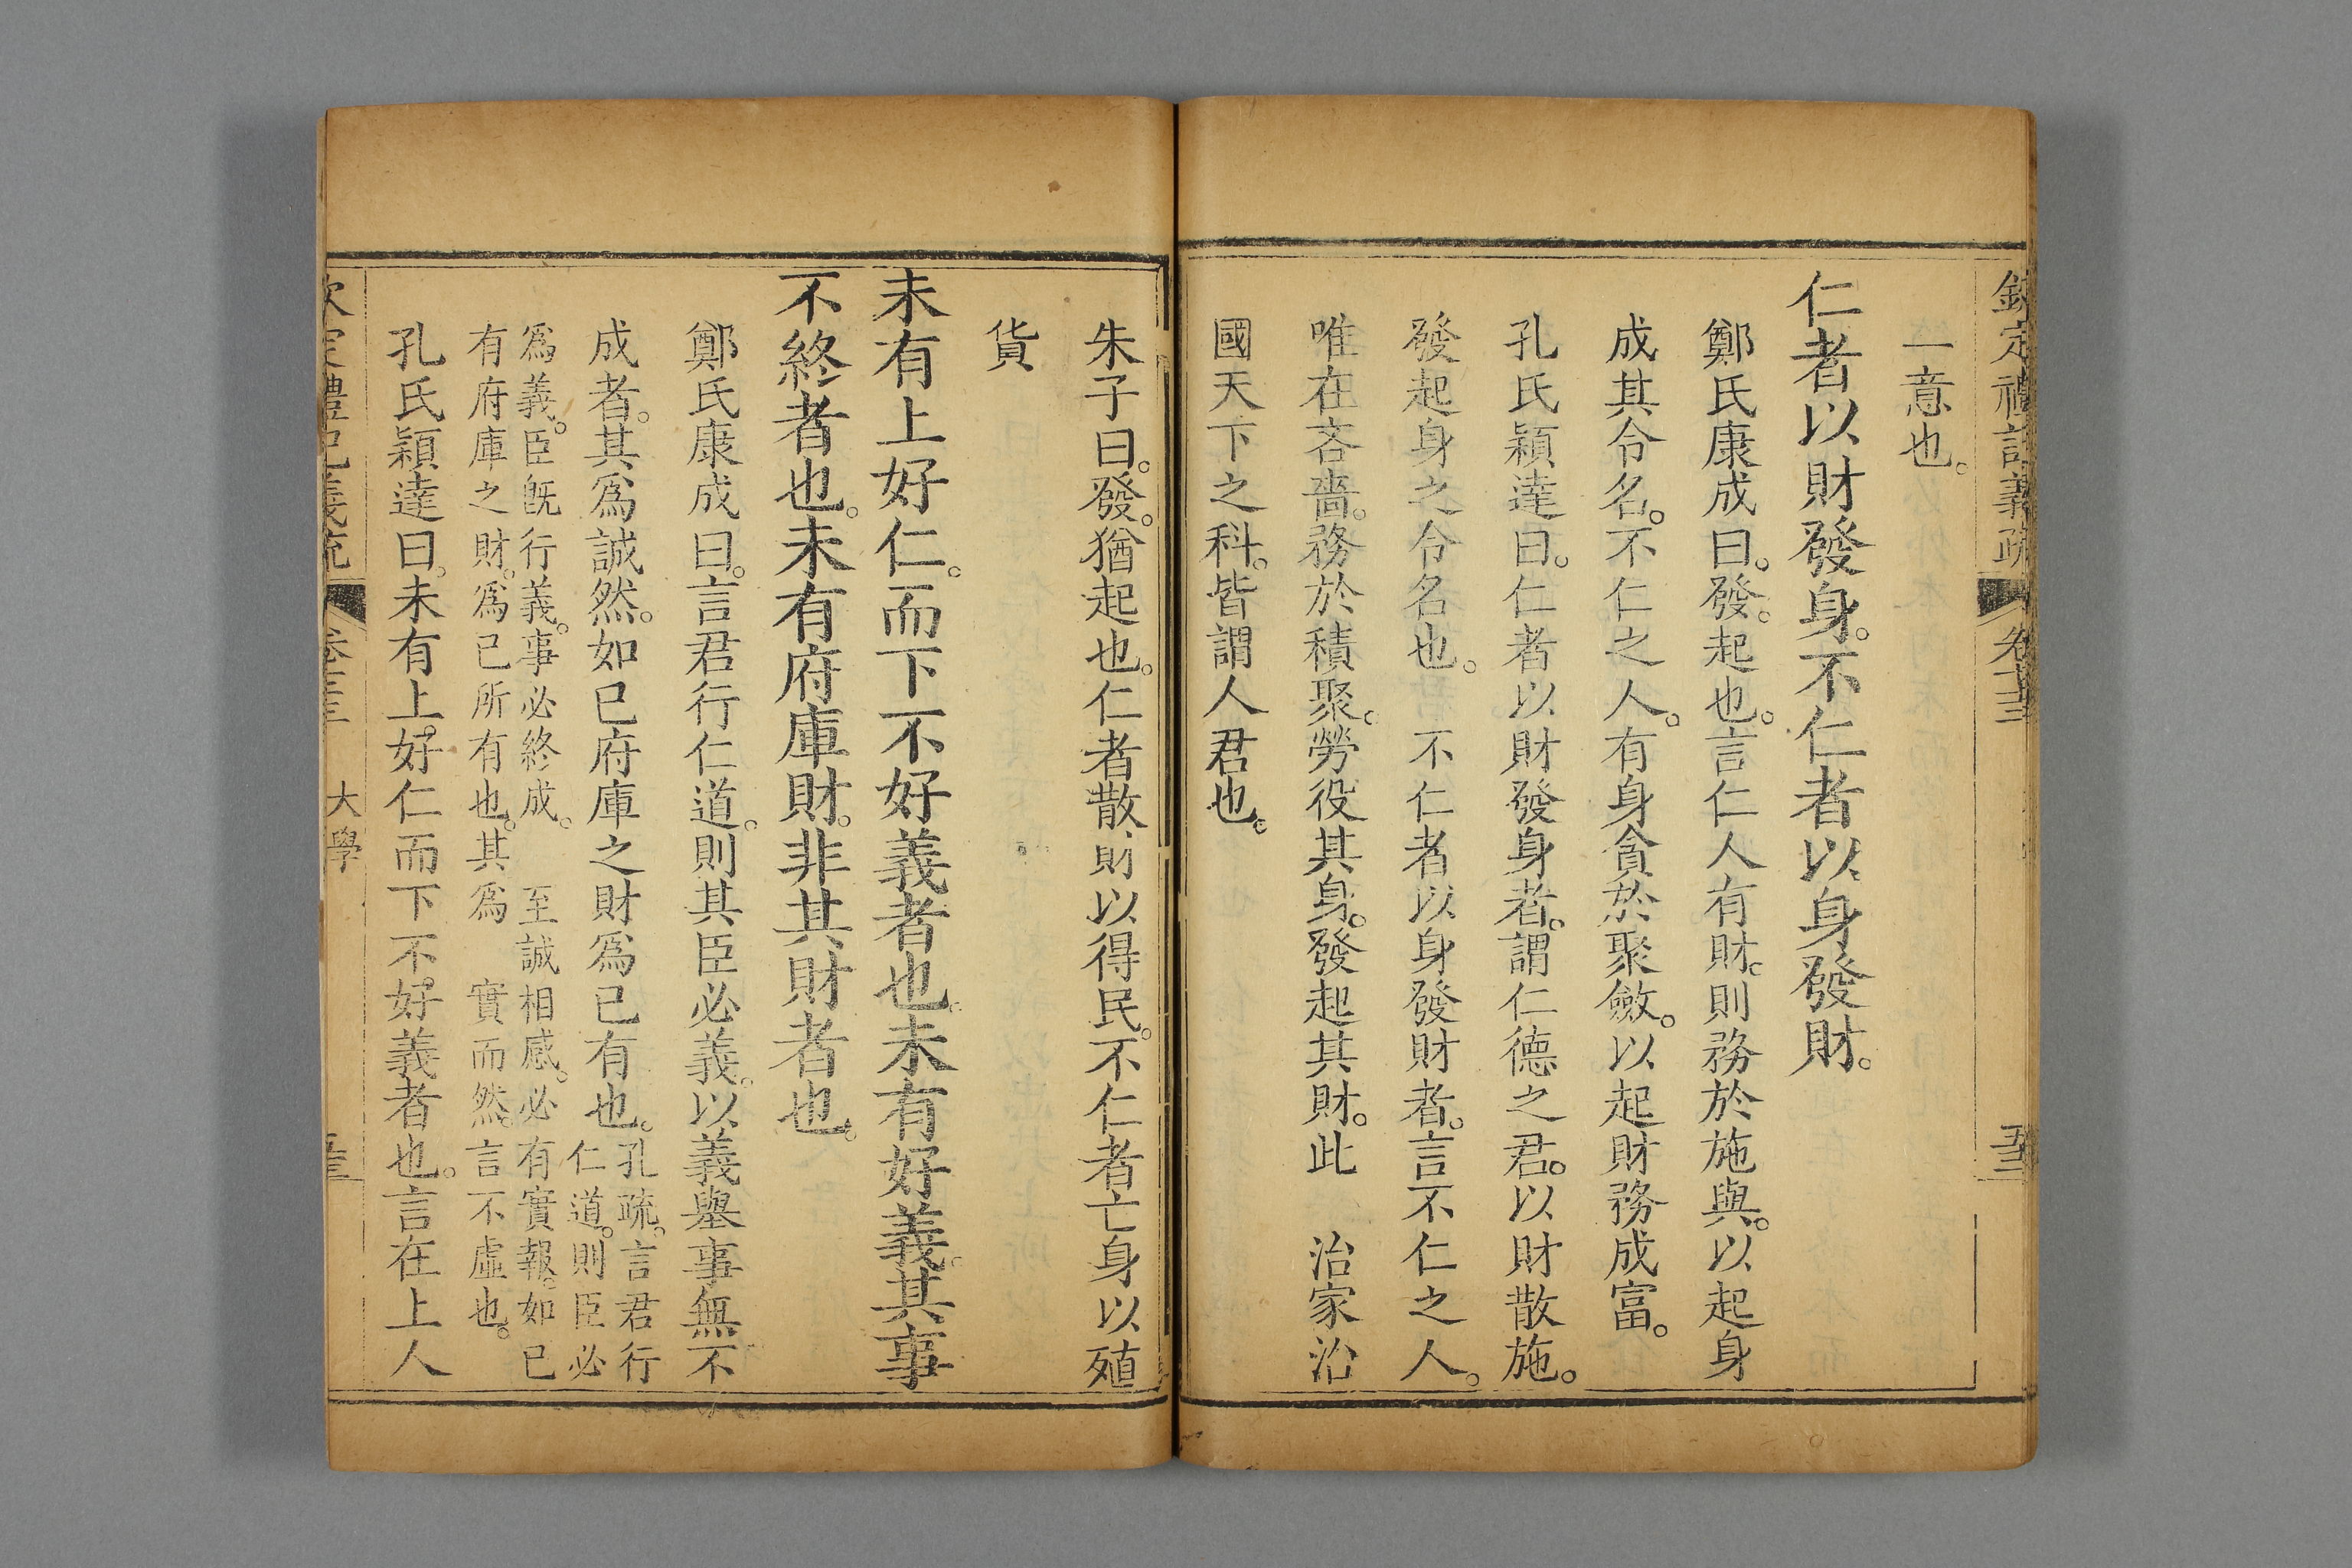 欽定禮記義疏 卷七十三 五三
一意也。
仁者以財發身。不仁者以身發財。
鄭氏康成曰。發。起也。言仁人有財。則務於施與。以起身
成其令名。不仁之人。有身貪於聚斂。以起財務成富。
孔氏穎達曰。仁者以財發身者。謂仁德之君。以財散施。
發起身之令名也。 不仁者以身發財者。言不仁之人。
唯在吝嗇。務於積聚。勞役其身。發起其財。此 治家治
國天下之科。皆謂人君也。
朱子曰。發。猶起也。仁者散財以得民。不仁者亡身以殖
貨
未有上好仁。而下不好義者也。未有好義。其事
不終者也。未有府庫財。非其財者也。
鄭氏康成曰。言君行仁道。則其臣必義。以義舉事無不
成者。其爲誠然。如已府庫之財爲已有也。
孔疏。言君行
仁道。則臣必
爲義。臣旣行義。事必終成。 至誠相感。必有實報。如已
有府庫之財。爲已所有也。其爲 實而然。言不虛也。
孔氏穎達曰。未有上。好仁而下不。好義者也。言在上人
欽定禮記義疏 大學